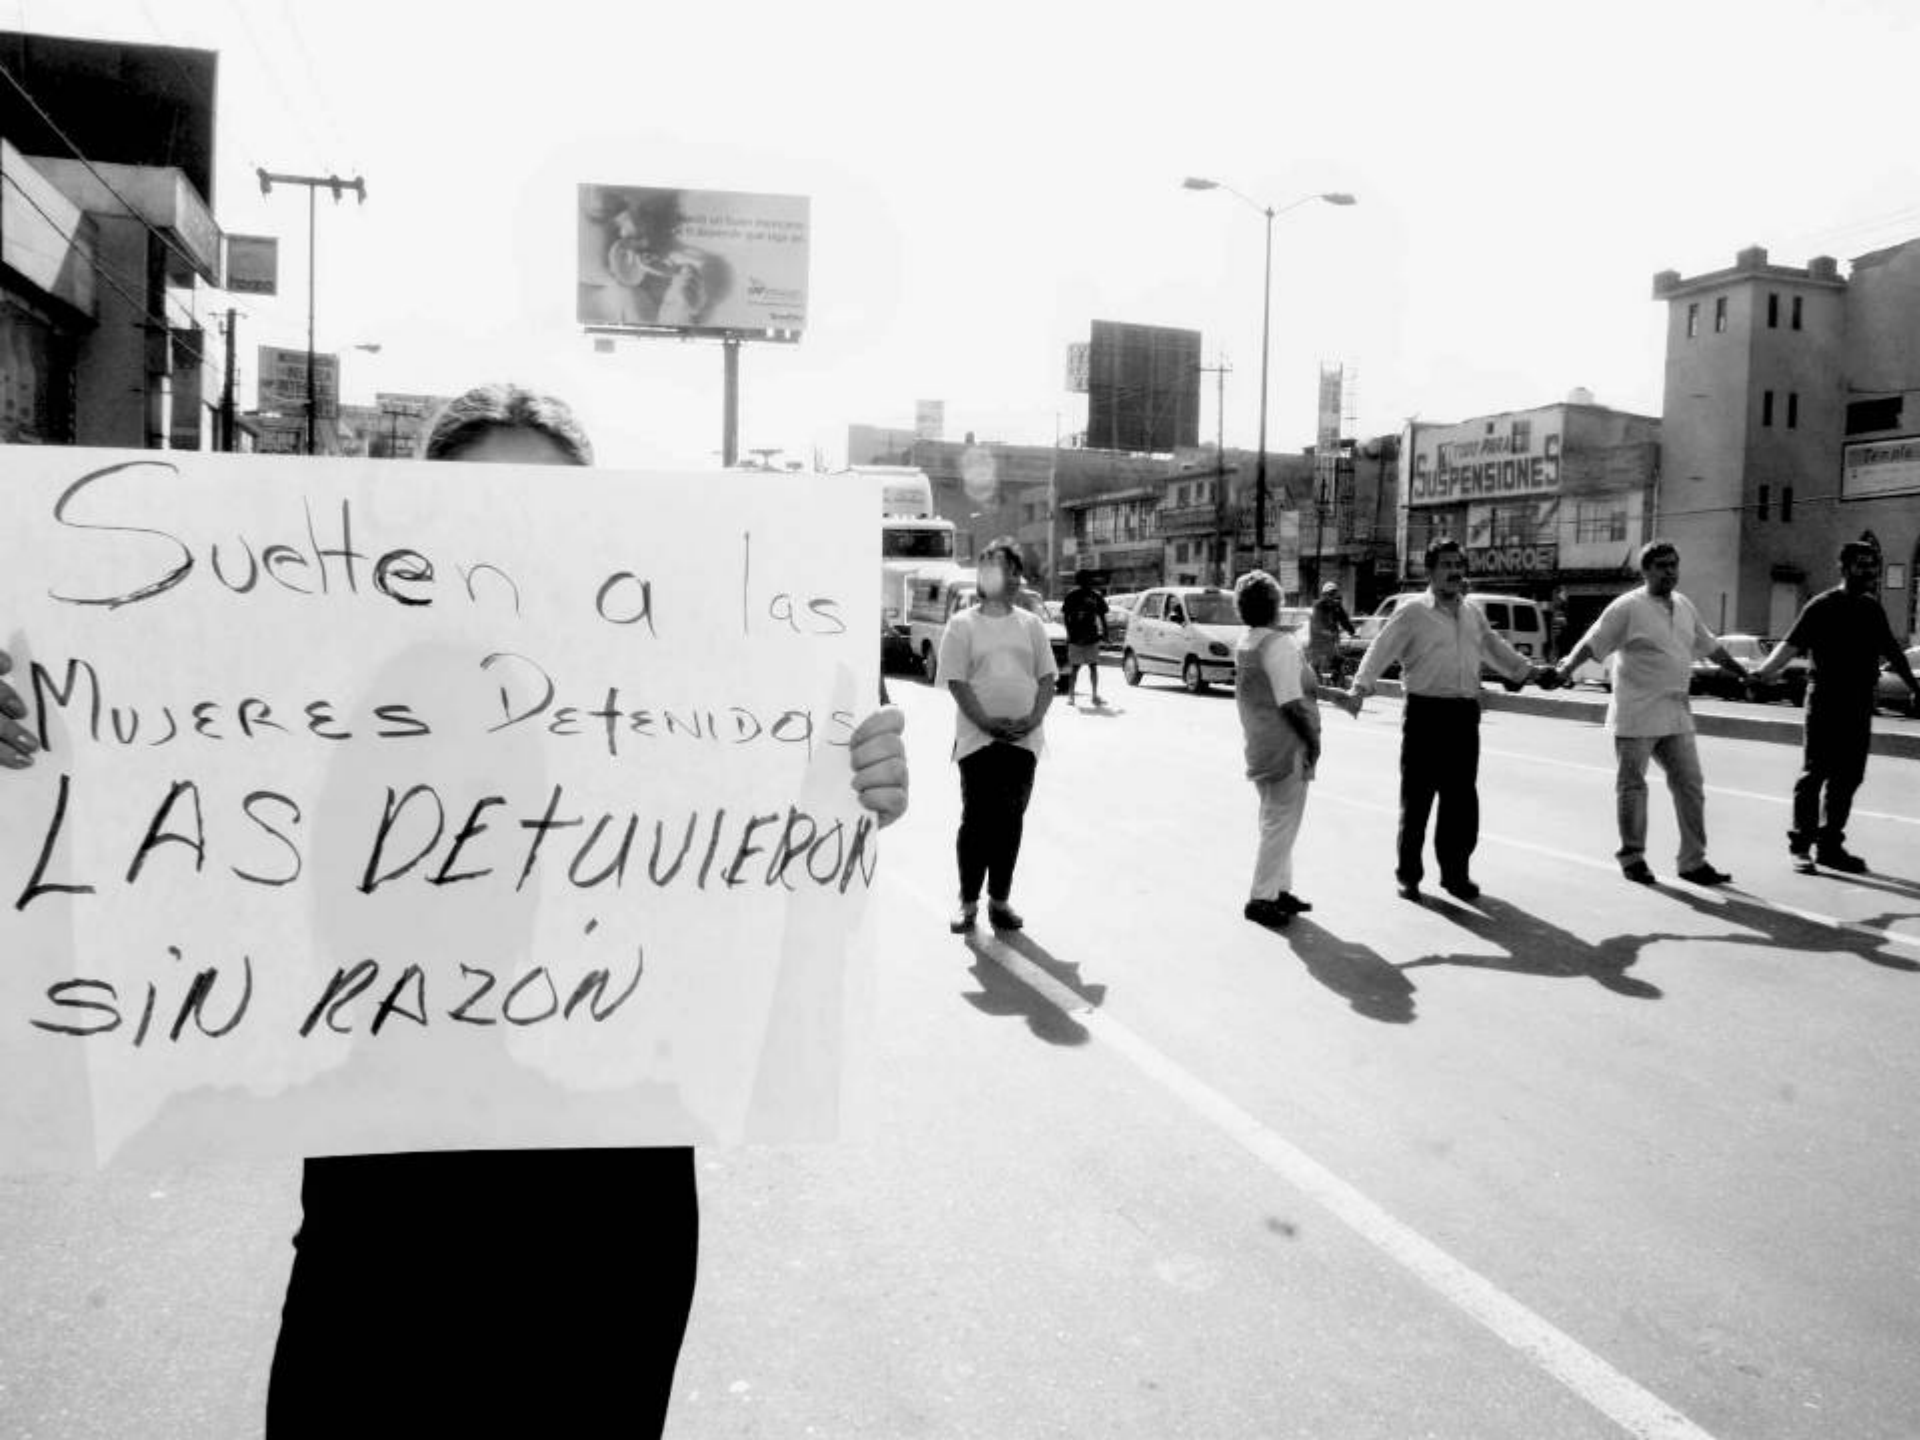 Suelten a las
MUJERES DETENIDAS
LAS DETUVIERON
SIN RAZÓN
TODO PARA
SUSPENSIONES
MONROE
Templo